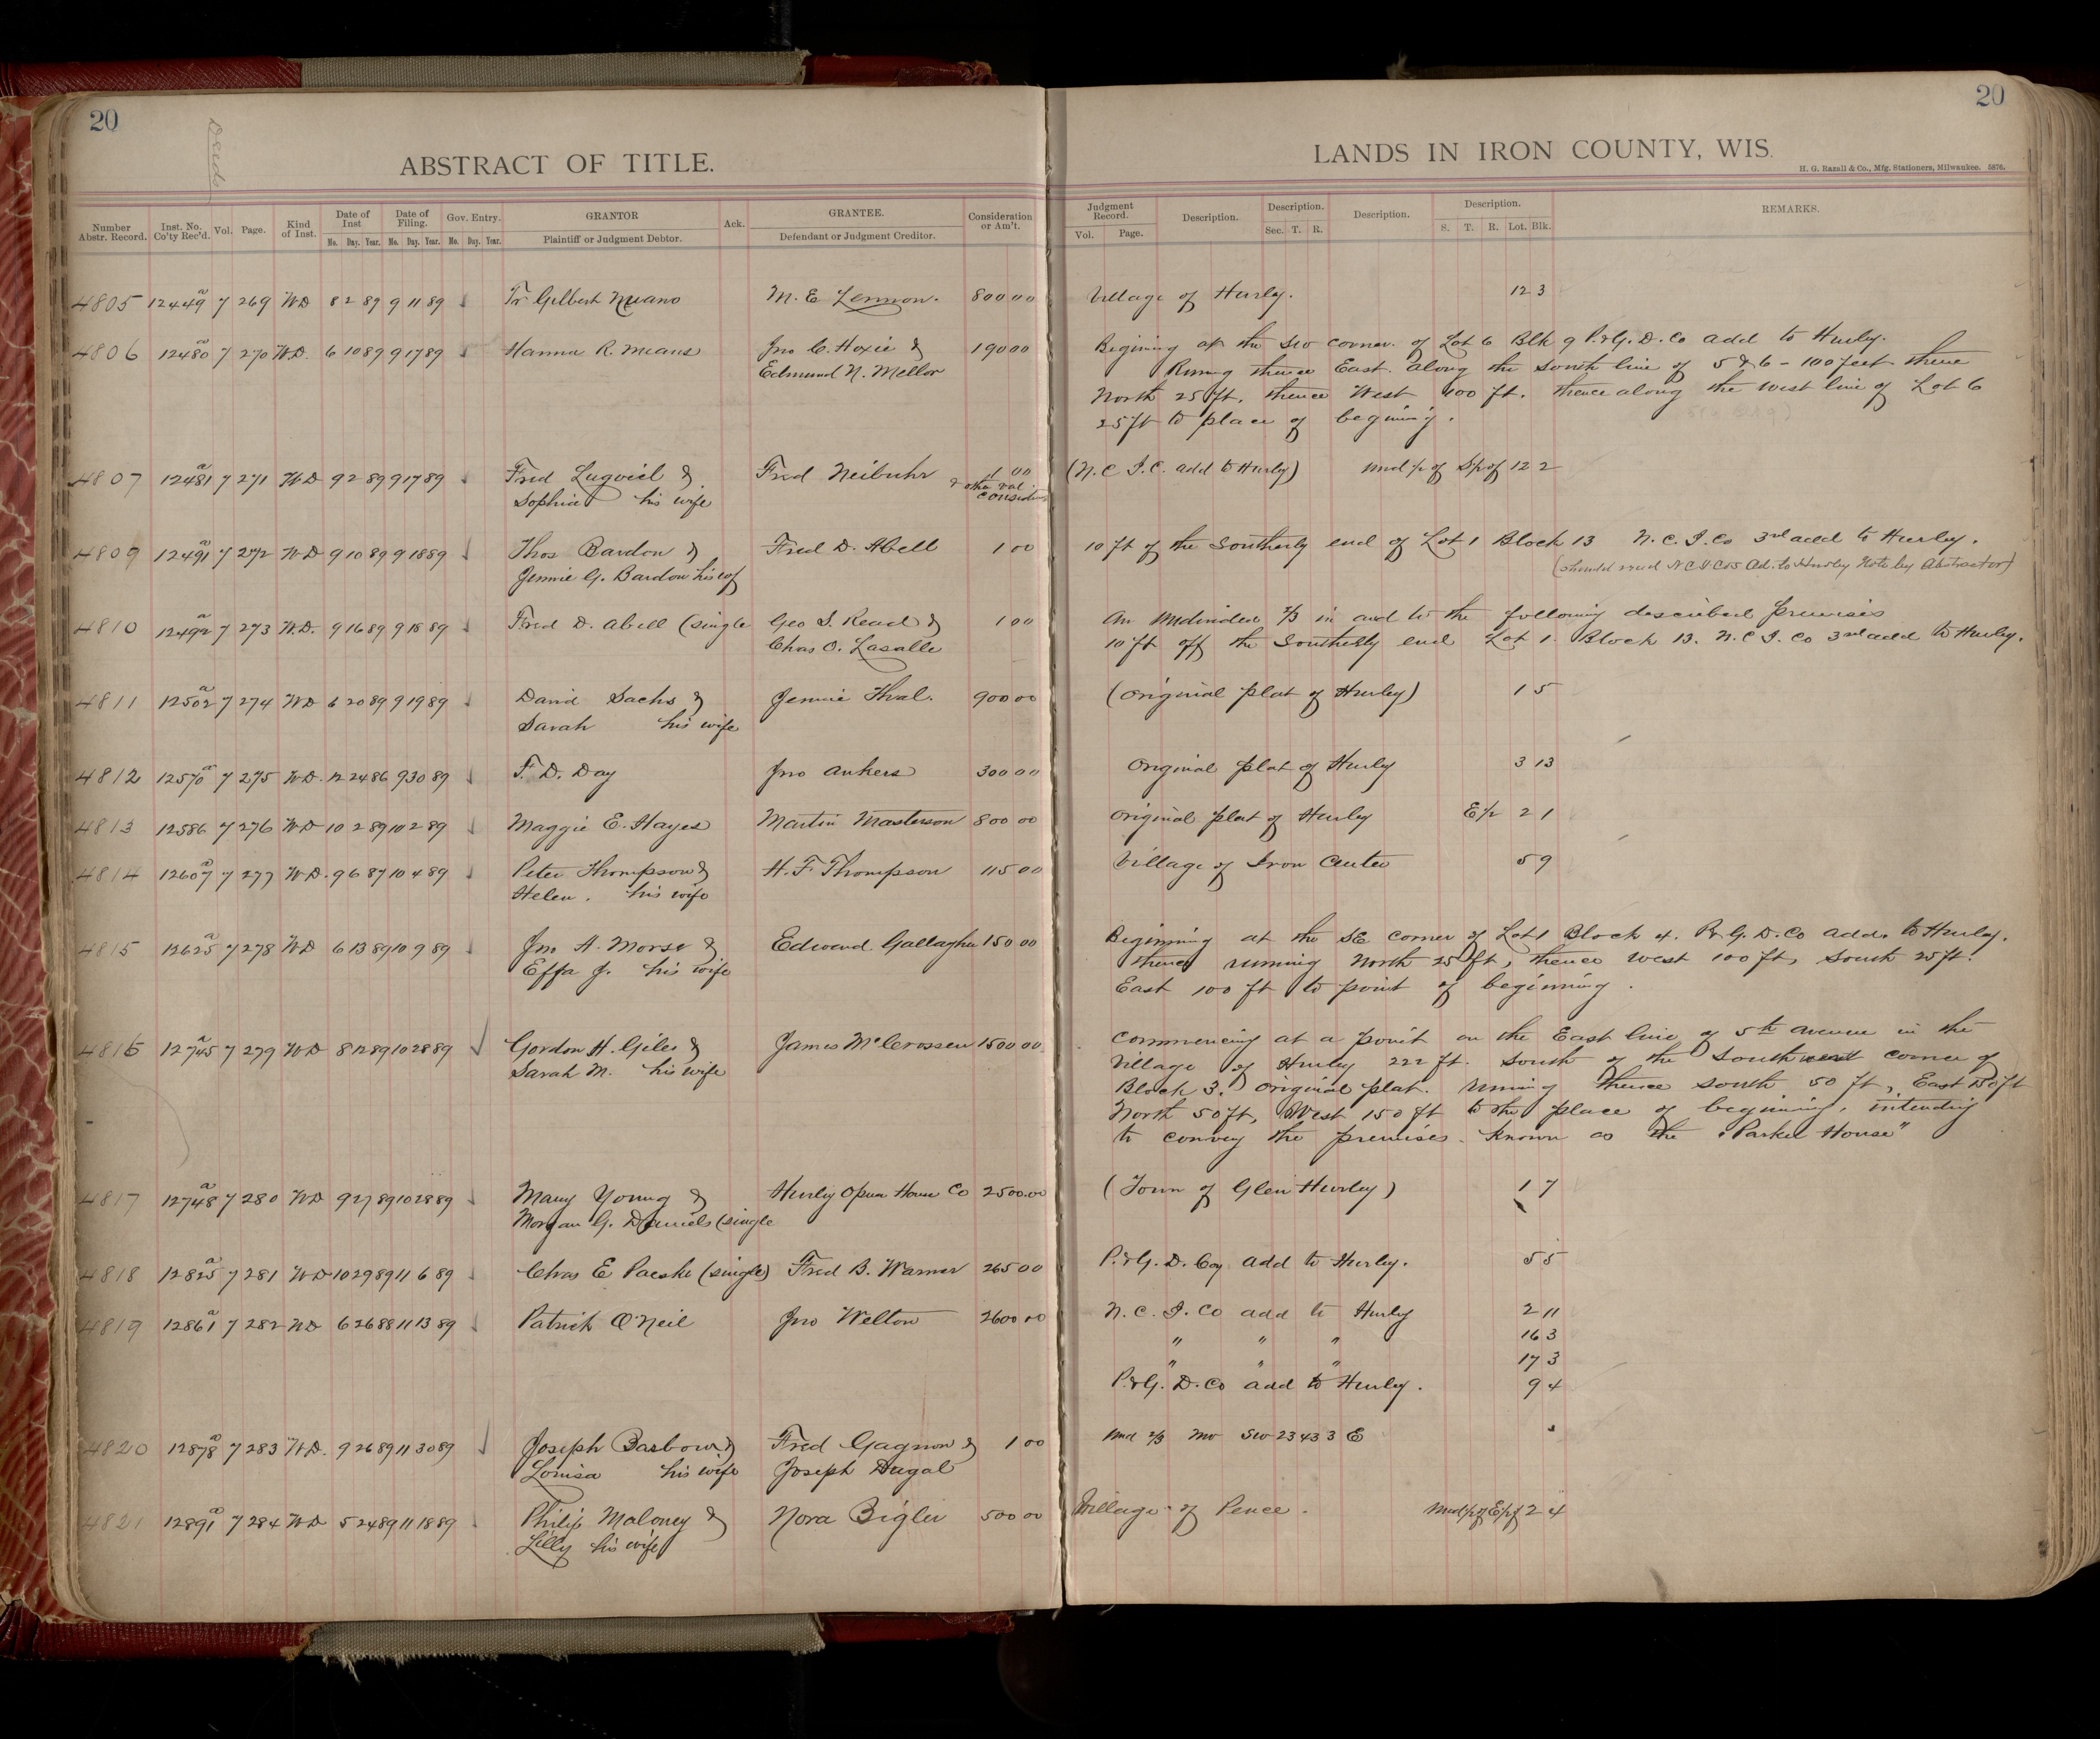 20
20
Deeds
ABSTRACT OF TITLE.
LANDS IN IRON COUNTY, WIS.
H. G. Razall & Co., Mfg. Stationers, Milwaukee. 5876.
Number Abstr. Record. Inst. No. Co'ty Rec'd. Vol. Page. Kind of Inst. Date of Inst Date of Filing. Gov. Entry. GRANTOR Ack. GRANTEE. Consideration or Am't. Judgment Record. Description. Description. Description. Description. REMARKS.
Mo. Day. Year. Mo. Day. Year. No. Day. Year. Plaintiff or Judgment Debtor. Defendant or Judgment Creditor. Vol. Page. Sec. T. R. S. T. R. Lot. Blk.
4805 12449 a 7 269 WD 8 2 89 9 11 89 Gilbert M. E. Lennon. 800 00 Village of Hurley. 12 3
4806 12480 a 7 270 W.D. 6 10 89 9 17 89 Hanna R. Means Jno C. Hoxie & 190 00 Begining at the SW corner. of Lot 6 Blk 9 P.&G. D. Co add to Hurley.
Edmund N. Mellor Runing thence East along the south line of 5 & 6 - 100 feet thence
North 25 ft. thence West 100 ft. thence along the west line of Lot 6
25 ft to place of begining.
4807 12481 a 7 271 WD 9 2 89 9 17 89 Fred & Fred Neibuhr 1 00 (N. C. I. C. add to Hurley) 12 2
Sophia his wife & other val. consideration
4809 12491 a 7 272 WD 9 10 89 9 18 89 Thos Bardon & Fred D. Abell 1 00 10 ft of the Southerly end of Lot 1 Block 13 N. C. I. Co 3rd add to Hurley.
Jennie G. Bardon his wf (should read N C I Cos Ad. to Hurley Note by Abstractor)
4810 12492 a 7 273 W.D. 9 16 89 9 18 89 Fred D. Abell (single Geo S. Read & 1 00 An undivided 2/3 in and to the following described premises
Chas O. Lasalle 10 ft off the Southerly end Lot 1. Block 13. N. C. I. Co 3rd add to Hurley.
4811 12502 a 7 274 WD 6 20 89 9 19 89 David Sachs & Jennie Thal. 900 00 (Original plat of Hurley) 1 5
Sarah his wife
4812 12570 a 7 275 W.D. 12 24 86 9 30 89 F. D. Day Jno Ankers 300 00 Original plat of Hurley 3 13
4813 12586 7 276 WD 10 2 89 10 2 89 Maggie E. Hayes Martin Masterson 800 00 Original plat of Hurley E 1/2 2 1
4814 12607 a 7 277 W.D. 9 6 87 10 4 89 Peter Thompson & H. F. Thompson 115 00 Village of Iron Center 5 9
Helen. his wife
4815 12625 a 7 278 WD 6 13 89 10 9 89 Jno A. Morse & Edward Gallagher 150 00 Beginning at the SE corner of Lot 1 Block 4. P.&G. D. Co add. to Hurley.
Effa J. his wife thence running North 25 ft, thence west 100 ft, South 25 ft.
East 100 ft to point of beginning.
4816 12745 a 7 279 WD 8 12 89 10 28 89 Gordon H. Giles & James McCrossen 1500 00 Commencing at a point on the East line of 5th avenue in the
Sarah M. his wife Village of Hurley 222 ft. South of the Southwest corner of
Block 3. Original plat. runing thence south 50 ft, East 150 ft
North 50 ft, West 150 ft to the place of begining, intending
to convey the premises known as the "Parker House"
4817 12748 a 7 280 WD 9 27 89 10 28 89 Mary Young & Hurley Opera House Co 2500.00 (Town of Glen Hurley) 1 7
Morgan G. Daniels (single
4818 12825 a 7 281 WD 10 29 89 11 6 89 Chas E Paeske (single) Fred B. Warner 265 00 P.&G. D. Coy add to Hurley. 5 5
4819 12861 a 7 282 WD 6 26 88 11 13 89 Patrick O'Neil Jno Welton 2600 00 N. C. I. Co add to Hurley 2 11
" " " 16 3
" " " 17 3
P.&G. D. Co add to Hurley. 9 4
4820 12878 a 7 283 W.D. 9 26 89 11 30 89 Joseph Barbow & Fred Gagnon & 1 00 Und 2/3 NW SW 23 43 3 E
Louisa his wife Joseph Dugal
4821 12891 a 7 284 WD 5 24 89 11 18 89 Philip Maloney & Nora Bigler 500 00 Village of Pence. 2 4
Lilly his wife